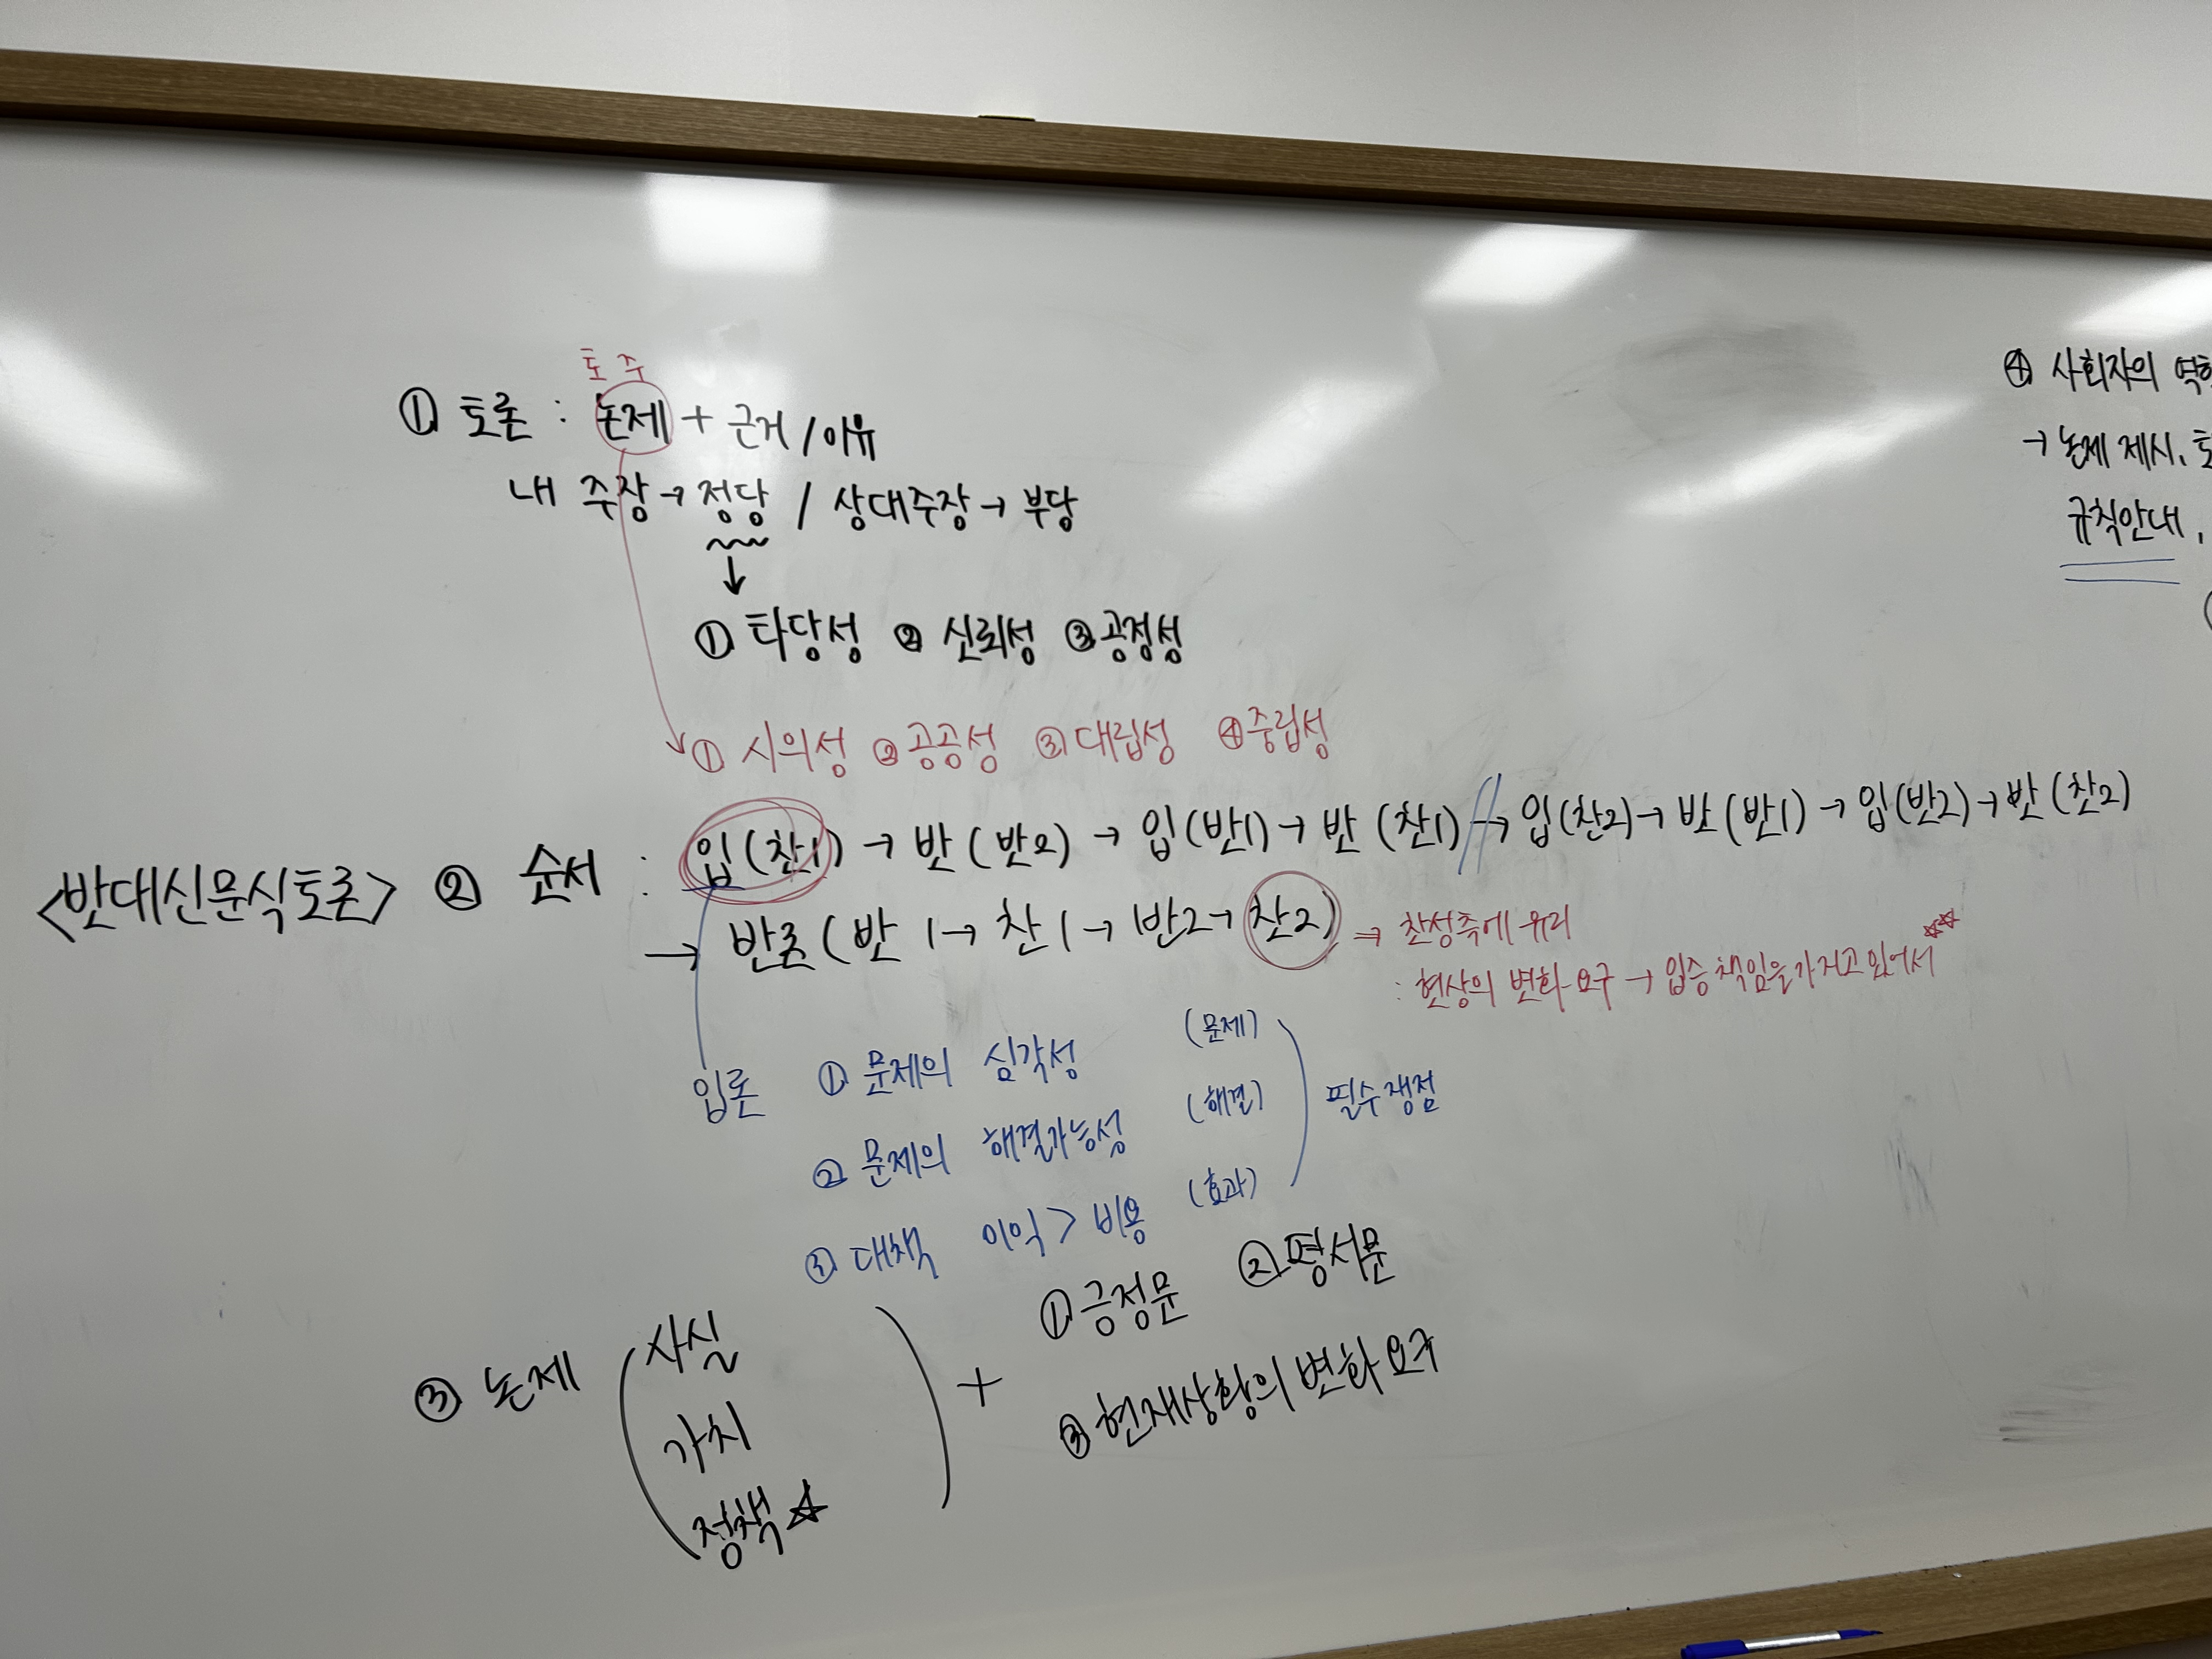 토 주
① 토론 : 논제 + 근거 / 이유
내 주장 → 정당 / 상대주장 → 부당
↓
① 타당성 ② 신뢰성 ③ 공정성
① 시의성 ② 공공성 ③ 대립성 ④ 중립성
<반대신문식토론> ② 순서 : 입(찬1) → 반(반2) → 입(반1) → 반(찬1) → 입(찬2) → 반(반1) → 입(반2) → 반(찬2)
→ 반론(반1 → 찬1 → 반2 → 찬2) ⇒ 찬성측에 유리
: 현상의 변화 요구 → 입증 책임을 가지고 있어서 ☆☆
입론 ① 문제의 심각성 (문제)
② 문제의 해결가능성 (해결)
③ 대책 이익 > 비용 (효과)
필수 쟁점
③ 논제
사실
가치
정책 ☆
+ ① 긍정문 ② 평서문
③ 현재상황의 변화 요구
④ 사회자의
→ 논제 제시,
규칙안내,